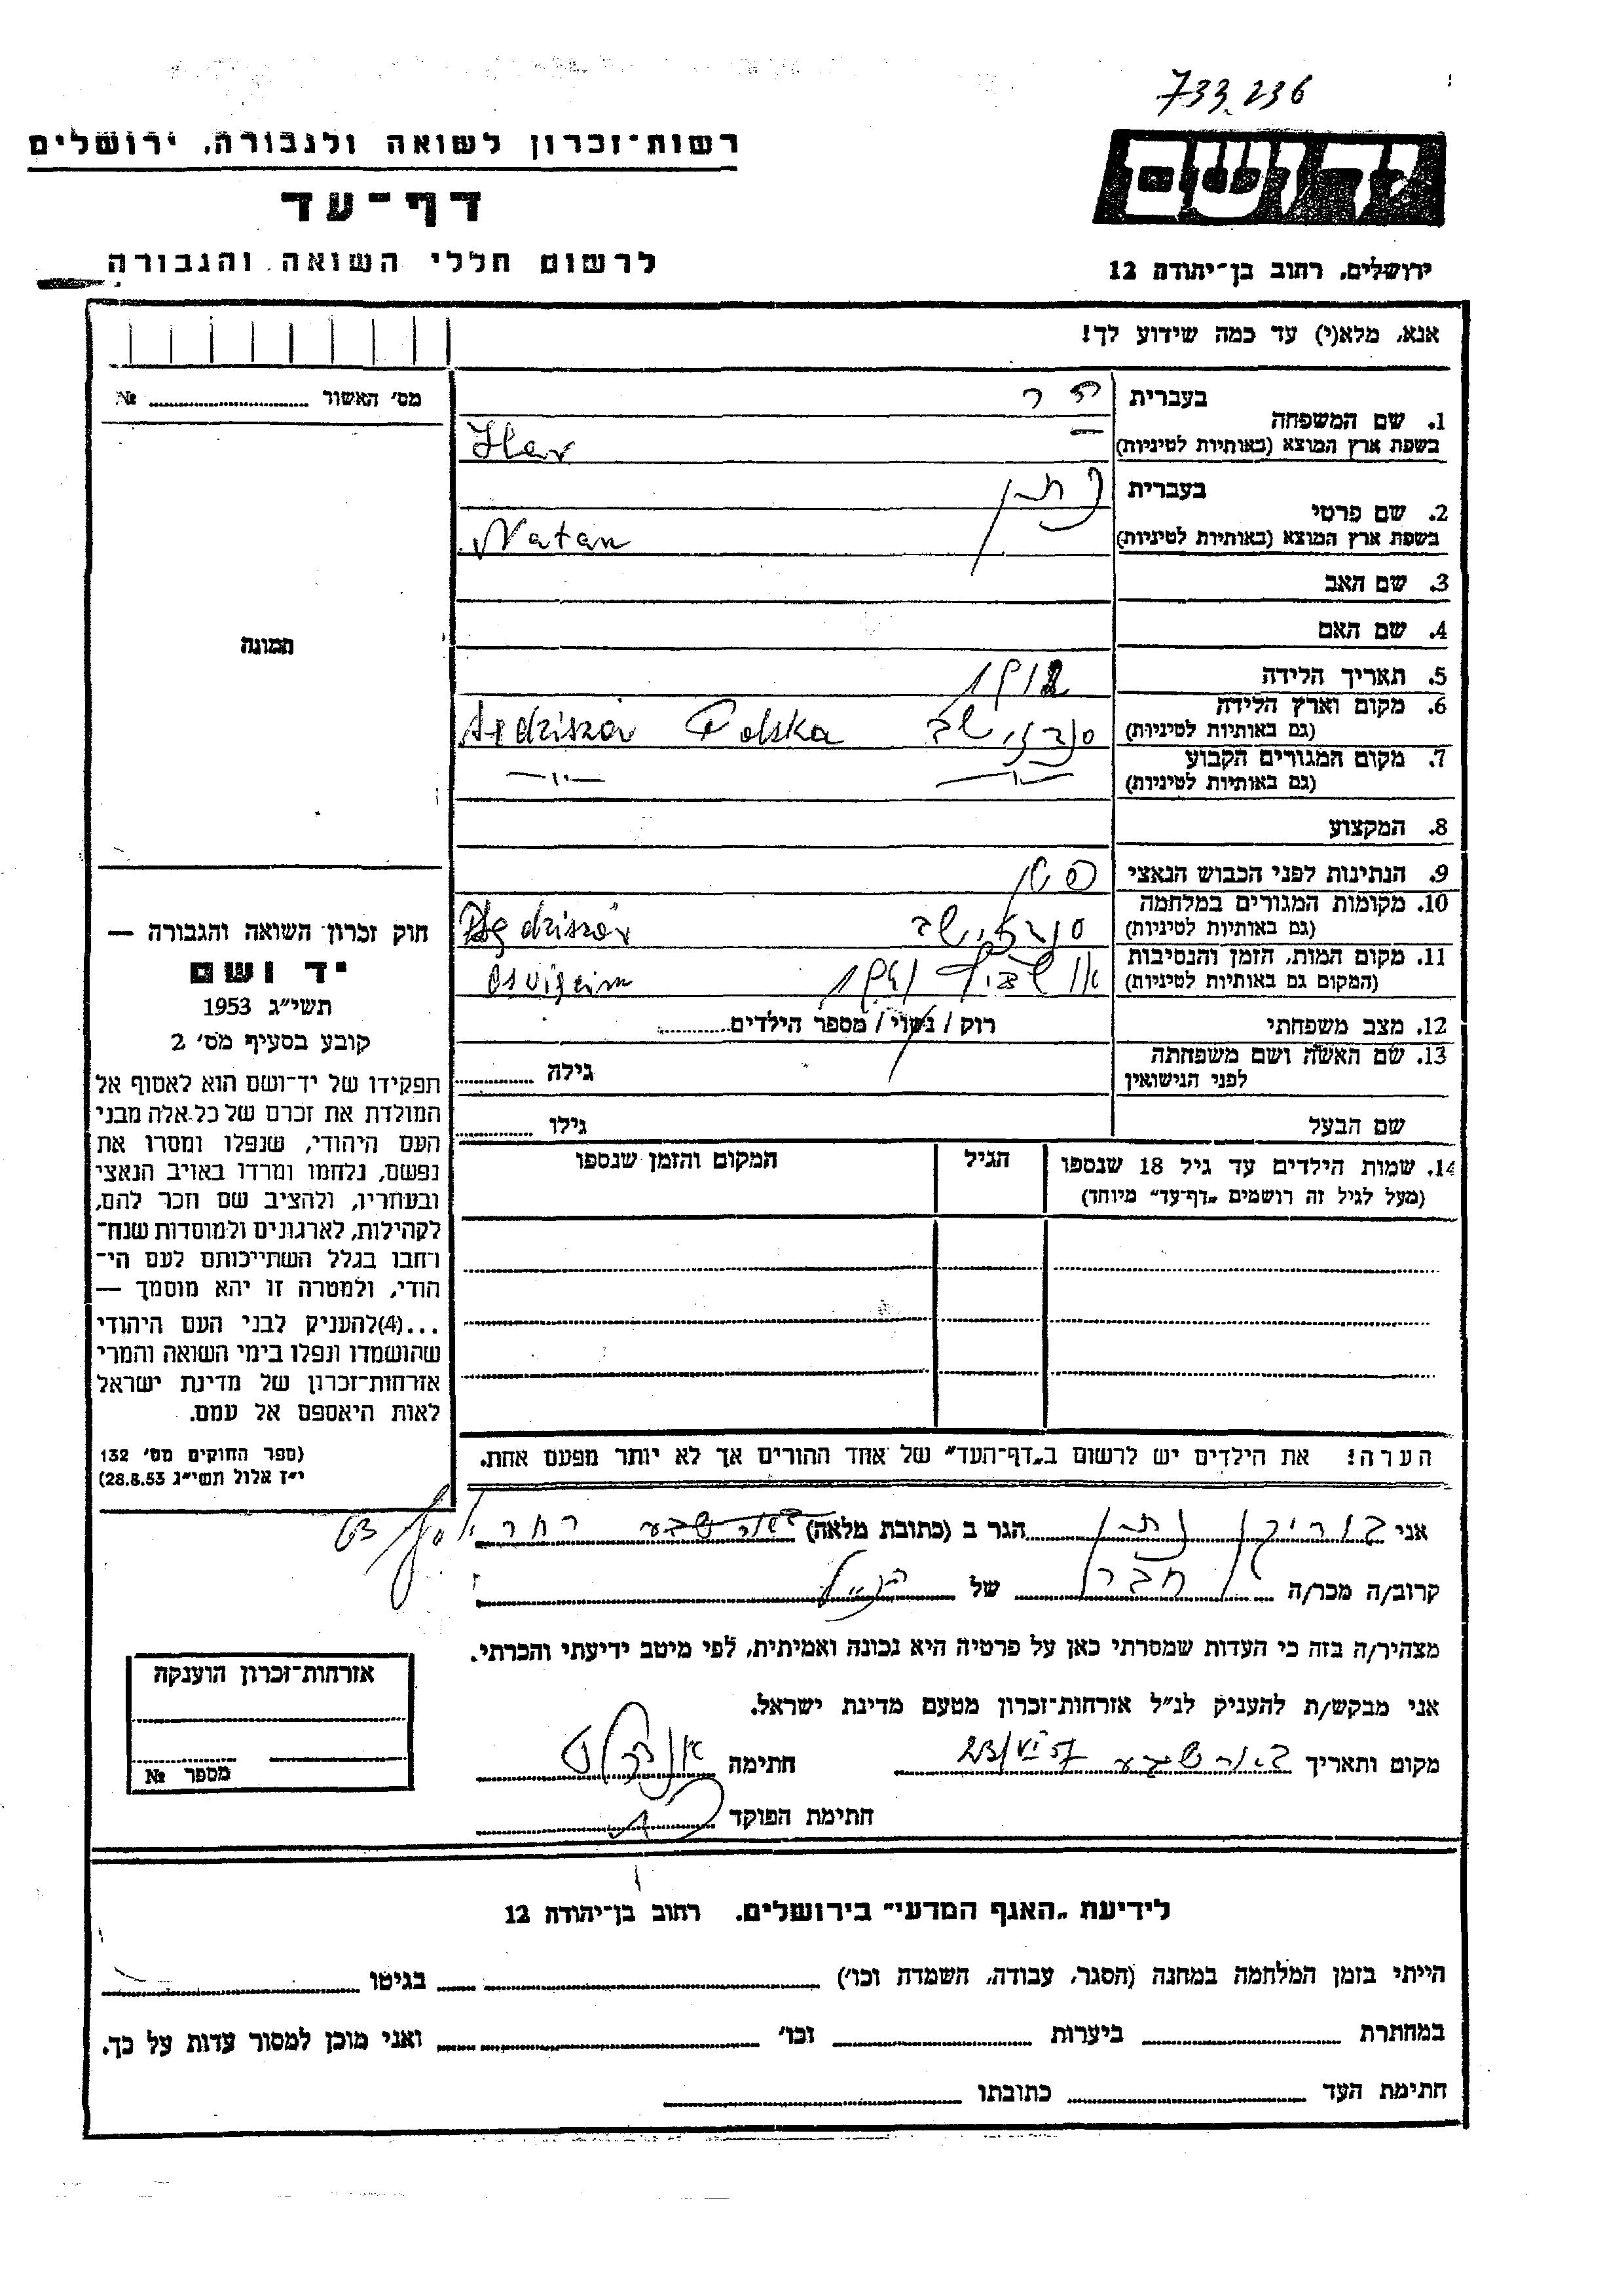 733236
רשות־זכרון לשואה ולגבורה, ירושלים
דף־עד
לרשום חללי השואה והגבורה
ידושם
ירושלים, רחוב בן־יהודה 12
אנא, מלא(י) עד כמה שידוע לך!
מס' האשור № 
1. שם המשפחה
בעברית
בשפת ארץ המוצא (באותיות לטיניות)
2. שם פרטי
בעברית נתן
בשפת ארץ המוצא (באותיות לטיניות) Natan
3. שם האב
4. שם האם
5. תאריך הלידה 1912
6. מקום וארץ הלידה
(גם באותיות לטיניות) Polska
7. מקום המגורים הקבוע
(גם באותיות לטיניות) —״— —״—
8. המקצוע
9. הנתינות לפני הכבוש הנאצי
10. מקומות המגורים במלחמה
(גם באותיות לטיניות)
11. מקום המות, הזמן והנסיבות
(המקום גם באותיות לטיניות)
12. מצב משפחתי רוק / נשוי / מספר הילדים
13. שם האשה ושם משפחתה
לפני הנישואין גילה
שם הבעל גילו
14. שמות הילדים עד גיל 18 שנספו
(מעל לגיל זה רושמים „דף־עד" מיוחד)
הגיל
המקום והזמן שנספו
הערה! את הילדים יש לרשום ב„דף־העד" של אחד ההורים אך לא יותר מפעם אחת.
תמונה
חוק זכרון השואה והגבורה —
יד ושם
תשי״ג 1953
קובע בסעיף מס' 2
תפקידו של יד־ושם הוא לאסוף אל
המולדת את זכרם של כל אלה מבני
העם היהודי, שנפלו ומסרו את
נפשם, נלחמו ומרדו באויב הנאצי
ובעוזריו, ולהציב שם וזכר להם,
לקהילות, לארגונים ולמוסדות שנח־
רחבו בגלל השתייכותם לעם הי־
הודי, ולמטרה זו יהא מוסמך —
...(4)להעניק לבני העם היהודי
שהושמדו ונפלו בימי השואה והמרי
אזרחות־זכרון של מדינת ישראל
לאות היאספם אל עמם.
(ספר החוקים מס' 132
י״ז אלול תשי״ג 28.8.53)
אני נתן הגר ב (כתובת מלאה) באר שבע
קרוב/ה מכר/ה חבר של הנ״ל
מצהיר/ה בזה כי העדות שמסרתי כאן על פרטיה היא נכונה ואמיתית, לפי מיטב ידיעתי והכרתי.
אני מבקש/ת להעניק לנ״ל אזרחות־זכרון מטעם מדינת ישראל.
מקום ותאריך באר שבע 23/VI 57 חתימה
חתימת הפוקד
אזרחות־זכרון הוענקה
מספר №
לידיעת „האגף המדעי" בירושלים. רחוב בן־יהודה 12
הייתי בזמן המלחמה במחנה (הסגר, עבודה, השמדה וכו') בגיטו
במחתרת ביערות וכו' ואני מוכן למסור עדות על כך.
חתימת העד כתובתו